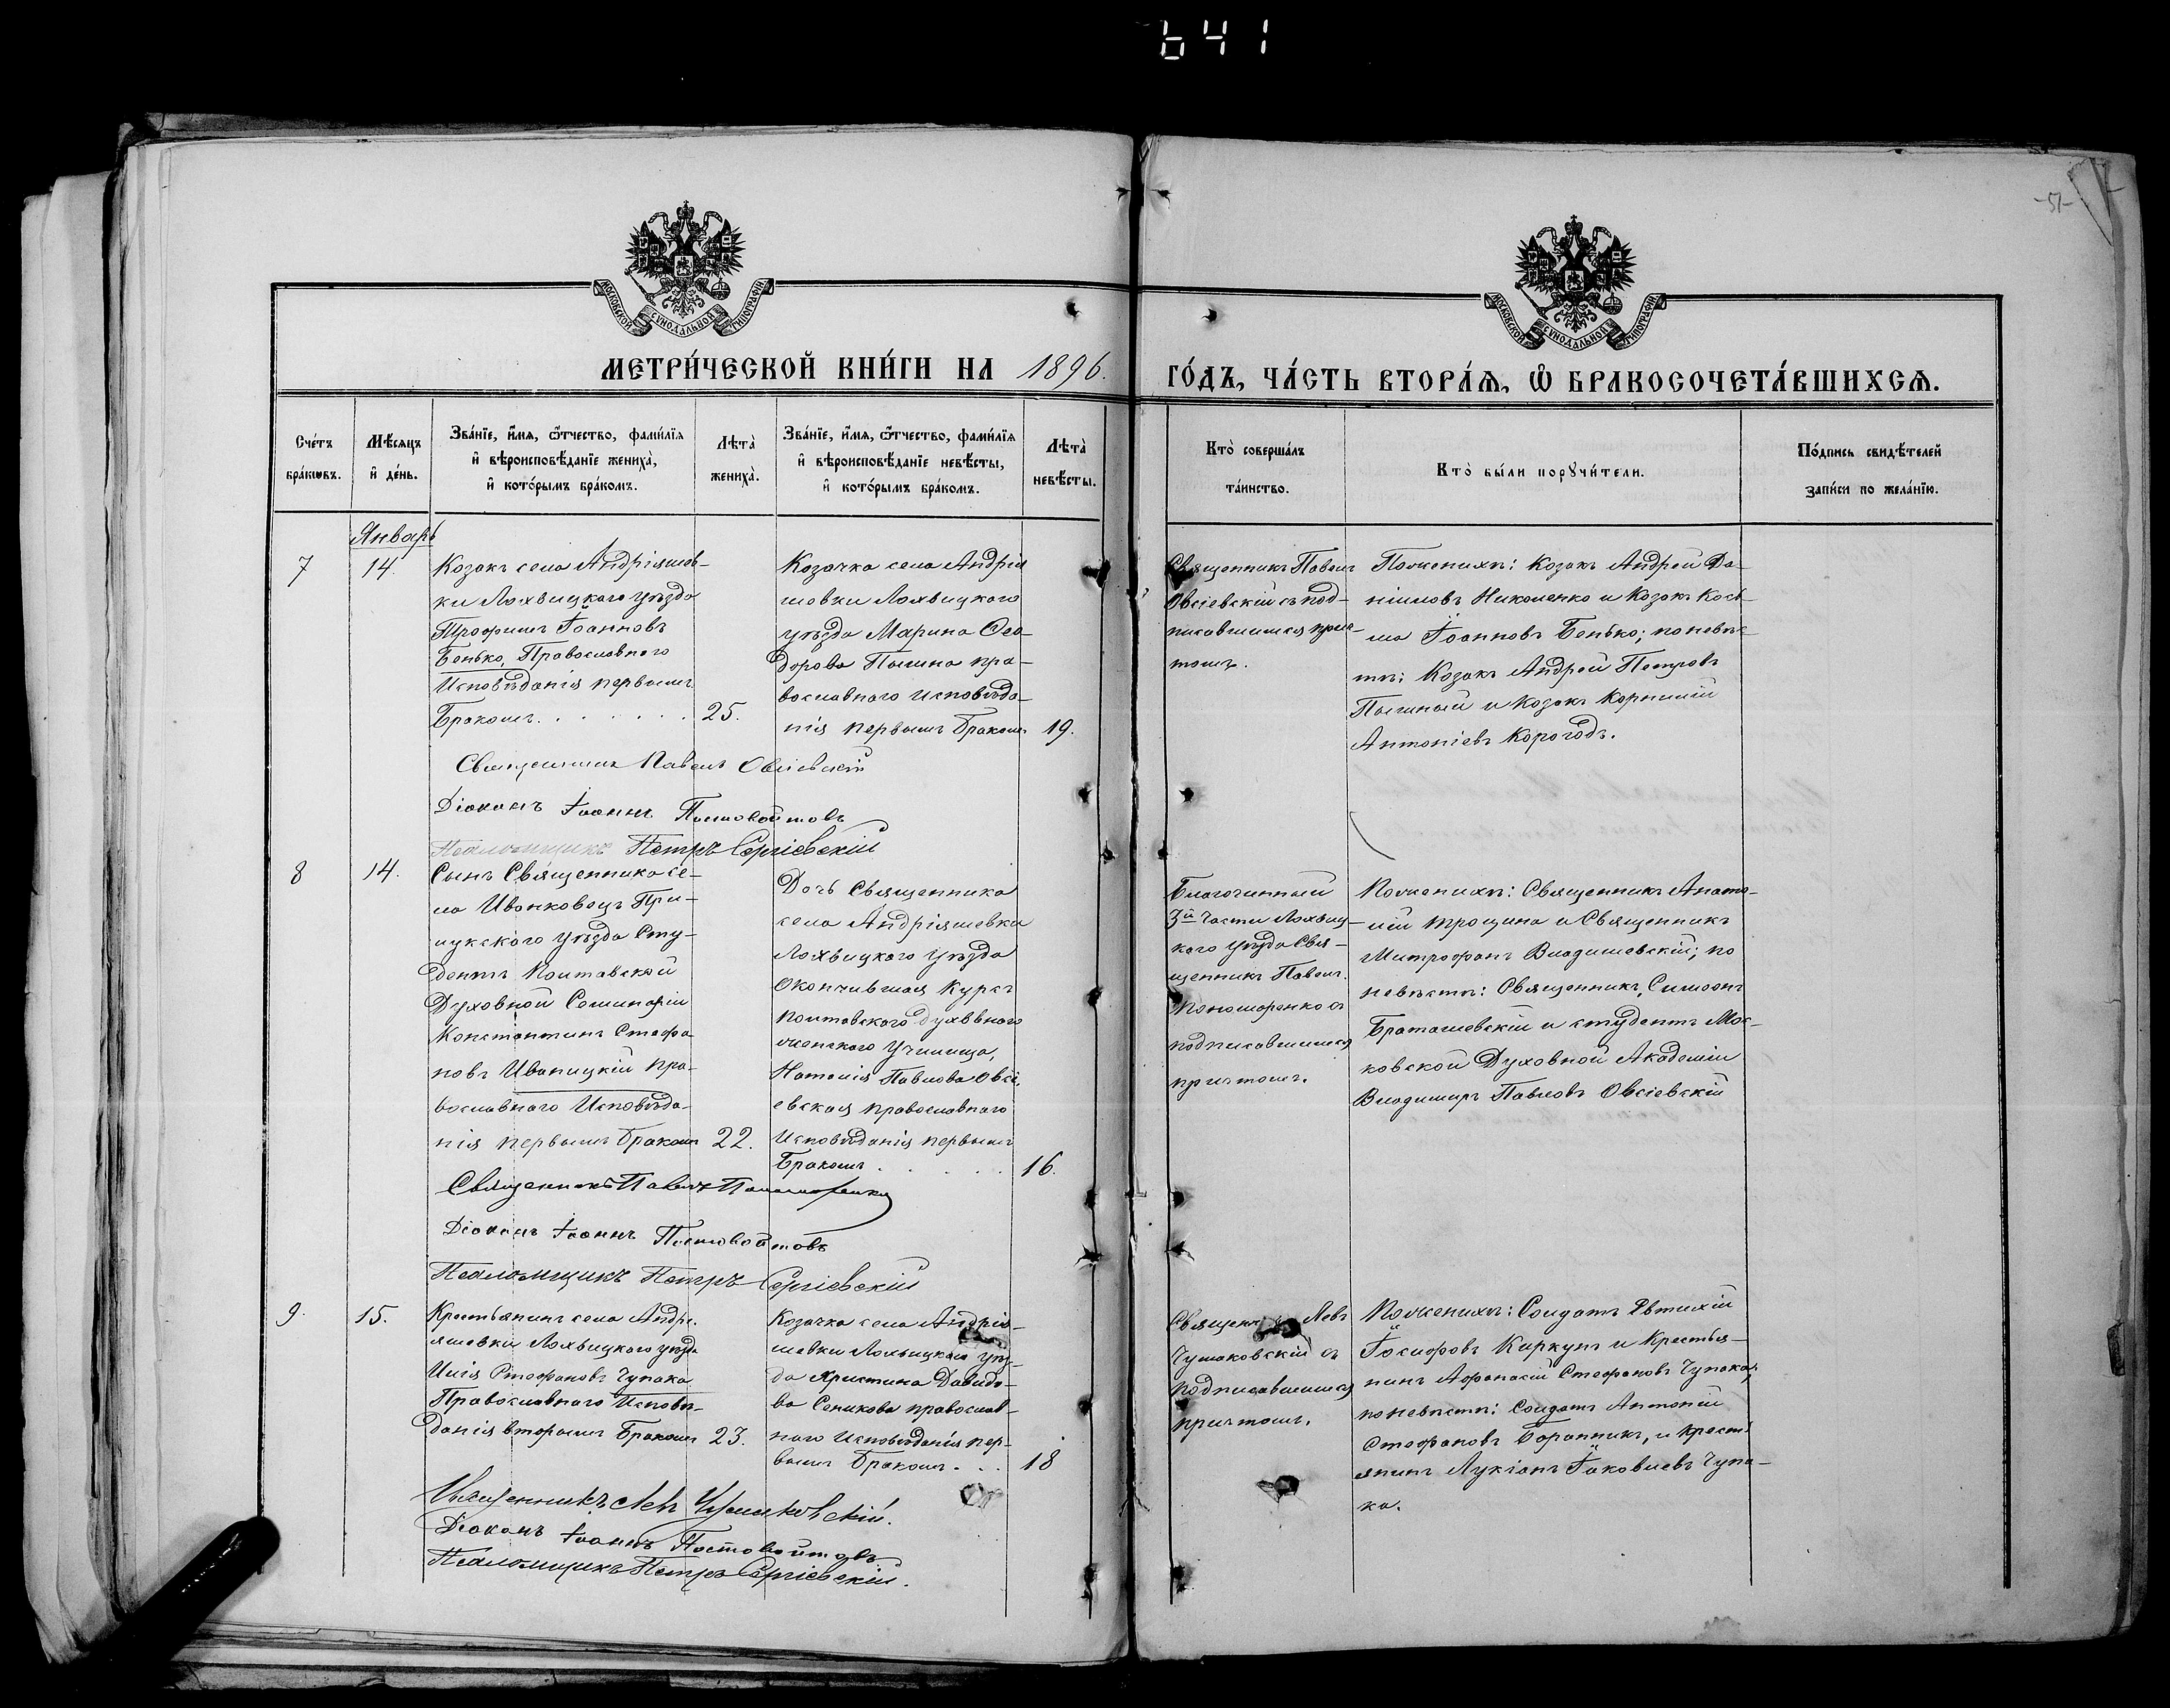 641
-51-
МОСКОВСКОЙ СѴНОДАЛЬНОЙ ТИПОГРАФІИ
МОСКОВСКОЙ СѴНОДАЛЬНОЙ ТИПОГРАФІИ
МЕТРИ́ЧЕСКОЙ КНИ́ГИ НА 1896.
ГО́ДЪ, ЧА́СТЬ ВТОРА́Ѧ, Ѡ҆ БРАКОСОЧЕТА́ВШИХСѦ.
Сче́тъ
бра́кѡвъ.
Мѣ́сѧцъ
и҆ де́нь.
Зва́нїе, и҆́мѧ, ѻ҆́тчество, фами́лїѧ
и҆ вѣроисповѣ́данїе жениха̀,
и҆ кото́рымъ бра́комъ.
Лѣта̀
жениха̀.
Зва́нїе, и҆́мѧ, ѻ҆́тчество, фами́лїѧ
и҆ вѣроисповѣ́данїе невѣ́сты,
и҆ кото́рымъ бра́комъ.
Лѣта̀
невѣ́сты.
Кто̀ соверша́лъ
та́инство.
Кто̀ бы́ли порꙋчи́тели.
По́дпись свидѣ́телей
за́писи по жела́нїю.
Январь
7
14.
Козакъ села Андріяшов-
ки Лохвицкаго уѣзда
Трофимъ Іоанновъ
Бенько, Православнаго
Исповѣданія первымъ
Бракомъ. . . . . . .
25.
Козачка села Андрія
шовки Лохвицкаго
уѣзда Марина Ѳео-
дорова Пошна пра-
вославнаго исповѣда-
нія первымъ Бракомъ
19.
Священникъ Павелъ
Овсіевскій съ под-
писавшимся прич-
томъ.
По женихѣ: Козакъ Андрей Да-
ніиловъ Николенко и Козакъ Кось-
ма Іоанновъ Бенько; по невѣс-
тѣ: Козакъ Андрей Петровъ
и Козакъ Корнилій
Антоніевъ Корогодъ.
Священникъ Павелъ Овсіевскій
Діаконъ Іоаннъ Постовойтовъ
Псаломщикъ Петръ Сергіевскій
8
14.
Сынъ Священника се-
ла Иванковецъ При-
лукскаго уѣзда Сту-
дентъ Полтавской
Духовной Семинаріи
Константинъ Стефа
новъ Иваницкій пра-
вославнаго Исповѣда-
нія первымъ бракомъ
22.
Дочь Священника
села Андріяшевки
Лохвицкаго уѣзда
Окончившая курсъ
Полтавскаго духовнаго
женскаго училища,
Наталія Павлова Овсі
евская православнаго
Исповѣданія первымъ
Бракомъ . . . . .
16.
Благочинный
3й части Лохвиц-
каго уѣзда Свя-
щенникъ Павелъ
Пономаренко съ
подписавшимся
причтомъ.
По женихѣ: Священникъ Анато-
лій Трощина и Священникъ
Митрофанъ Владишевскій; по
невѣстѣ: Священникъ Симеонъ
Браташевскій и студентъ Мос-
ковской Духовной Академіи
Владимиръ Павловъ Овсіевскій
Священникъ Павелъ Пономаренко
Діаконъ Іоаннъ Постовойтовъ
Псаломщикъ Петръ Сергіевскій
9.
15.
Крестьянинъ села Андрі-
яшевки Лохвицкаго уѣзда
Илія Стефановъ Чупака
Православнаго Исповѣ-
данія вторымъ Бракомъ
23.
Козачка села Андрія-
шевки Лохвицкаго уѣз-
да Христина Давидо-
ва Сеникова православ-
наго Исповѣданія пер-
вымъ Бракомъ. . .
18
Священникъ Левъ
Чушаковскій съ
подписавшимся
причтомъ.
По женихѣ: Солдатъ Евтихій
Іосифовъ Киркунъ и Крестья-
нинъ Афанасій Стефановъ Чупака;
по невѣстѣ: Солдатъ Антоній
Стефановъ Боранникъ, и крестъ
янинъ Лукіанъ Іаковлевъ Чупа-
ка.
Священникъ Левъ Чушаковскій.
Діаконъ Іоаннъ Постовойтовъ
Псаломщикъ Петръ Сергіевскій.